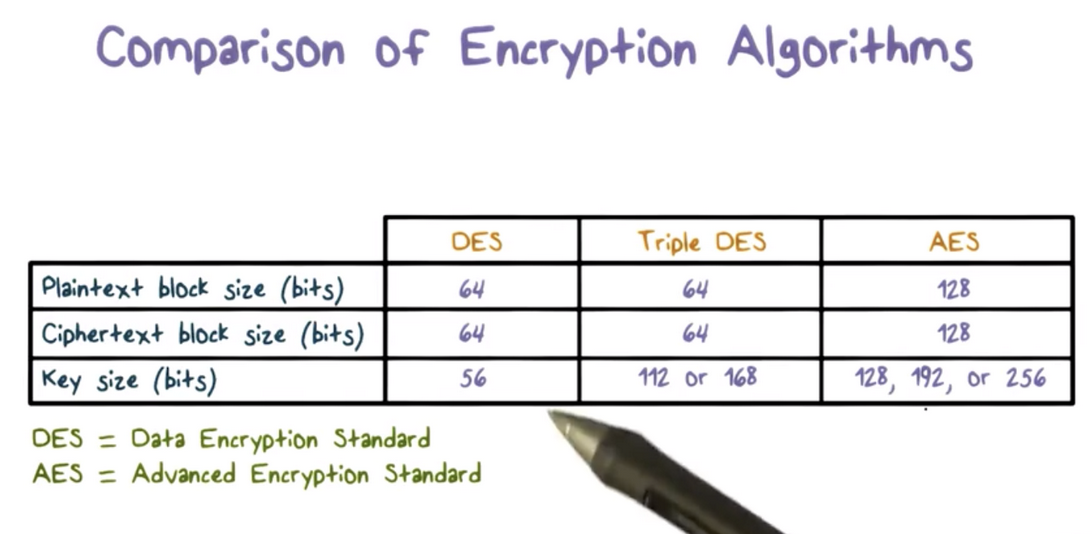 Comparison of Encryption Algorithms
DES Triple DES AES
Plaintext block size (bits) 64 64 128
Ciphertext block size (bits) 64 64 128
Key size (bits) 56 112 or 168 128, 192, or 256
DES = Data Encryption Standard
AES = Advanced Encryption Standard